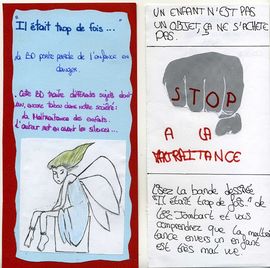 "Il était trop de fois..."
La BD porte parole de l'enfance en
danger.
Cette BD traite différents sujets dont
un, encore tabou dans notre société :
la Maltraitance des enfants.
L'auteur met en avant les silences...
UN ENFANT N'EST PAS
UN OBJET, ÇA NE S'ACHETE
PAS.
STOP
A LA
MALTRAITANCE
Lisez la bande dessinée
"Il était trop de fois" de
Lez Jambart et vous
comprendrez que la maltrai
tance envers un enfant
est très mal vue.